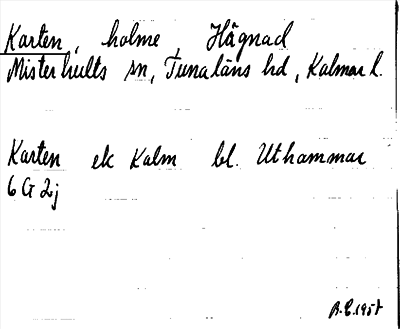 Karten, holme, Hägnad
Misterhults sn, Tunaläns hd, Kalmar l.
Karten ek Kalm bl. Uthammar
6 G 2j
B.E. 1957